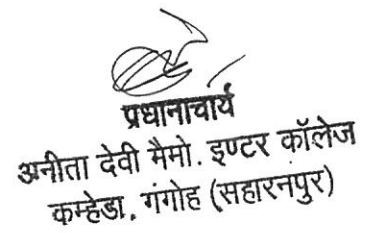 प्रधानाचार्य
अनीता देवी मैमो. इण्टर कॉलेज
कम्हेडा, गंगोह (सहारनपुर)